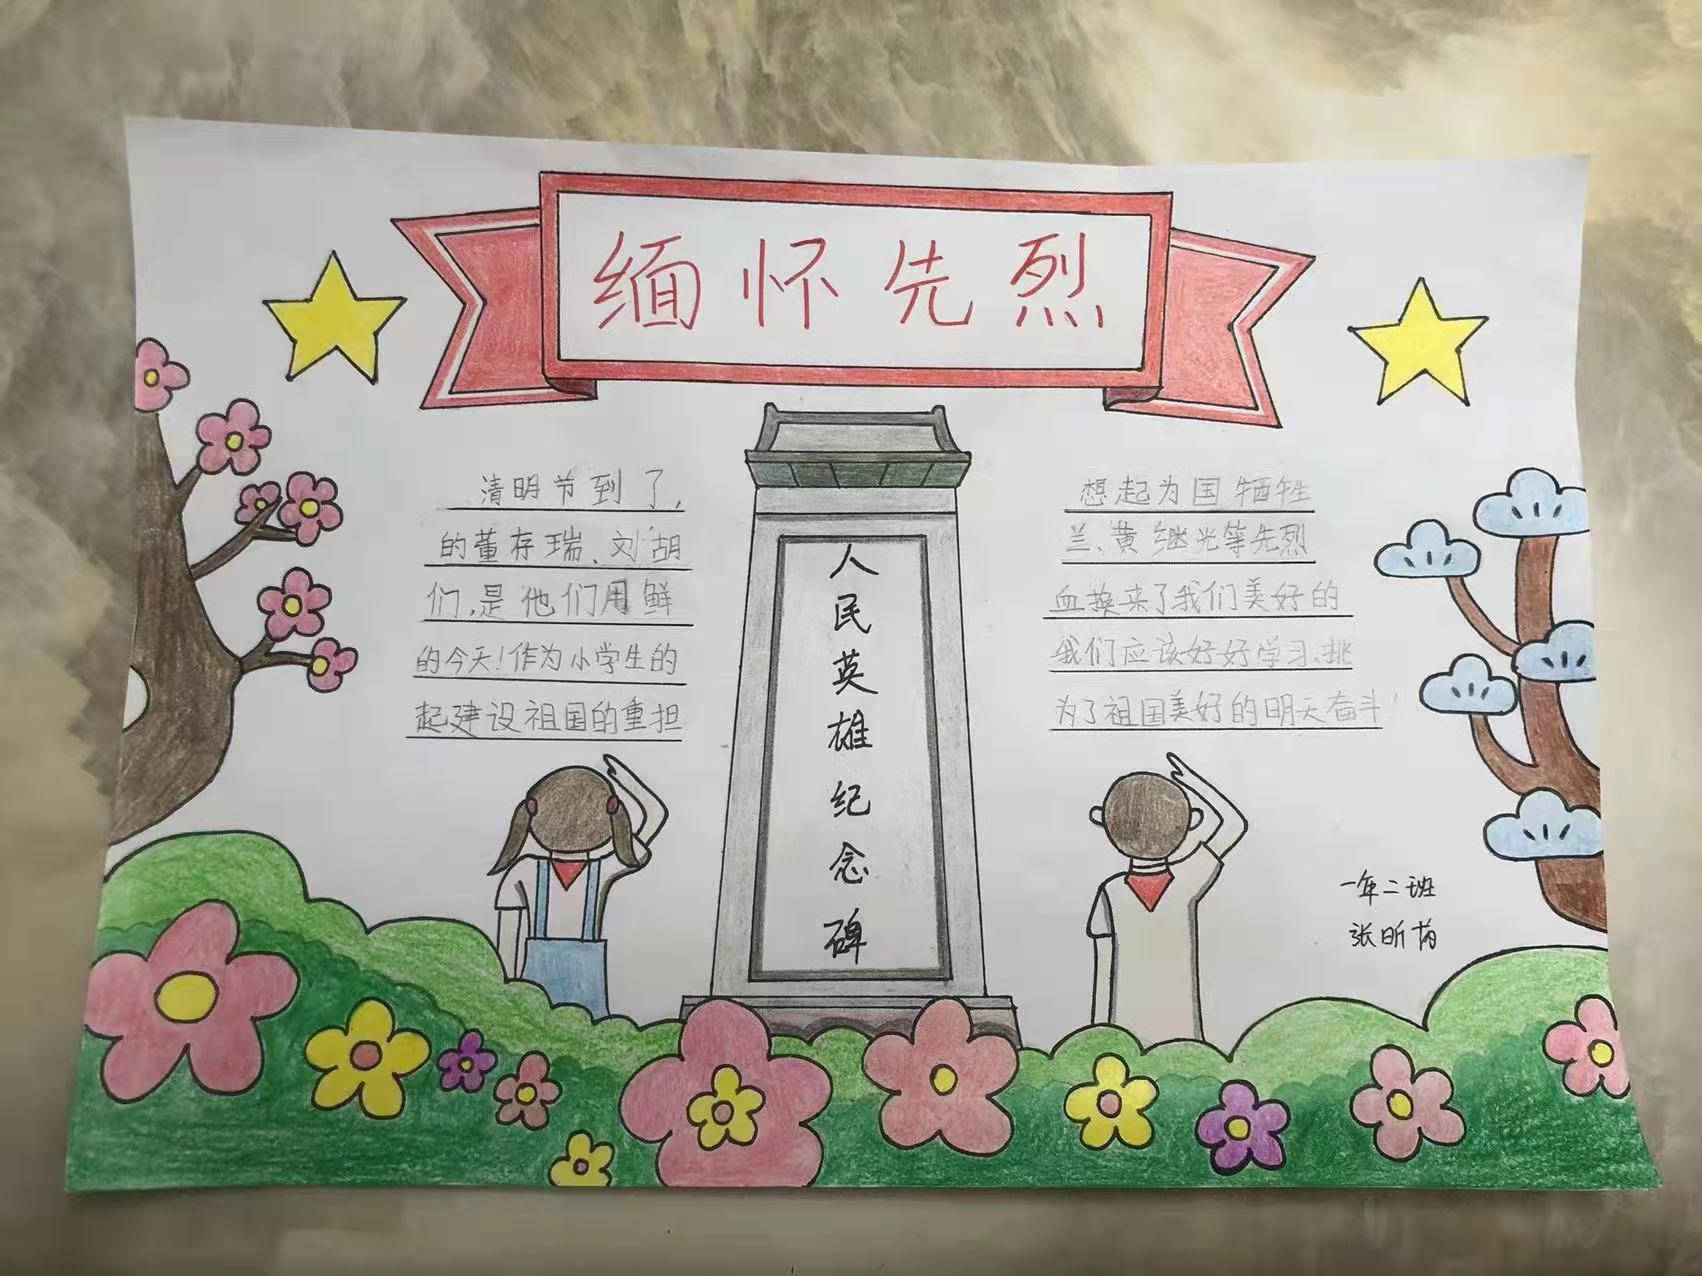 缅怀先烈
清明节到了,想起为国牺牲
的董存瑞、刘胡兰、黄继光等先烈
们,是他们用鲜血换来了我们美好的
的今天!作为小学生的我们应该好好学习,挑
起建设祖国的重担为了祖国美好的明天奋斗!
人民英雄纪念碑
一年二班
张昕